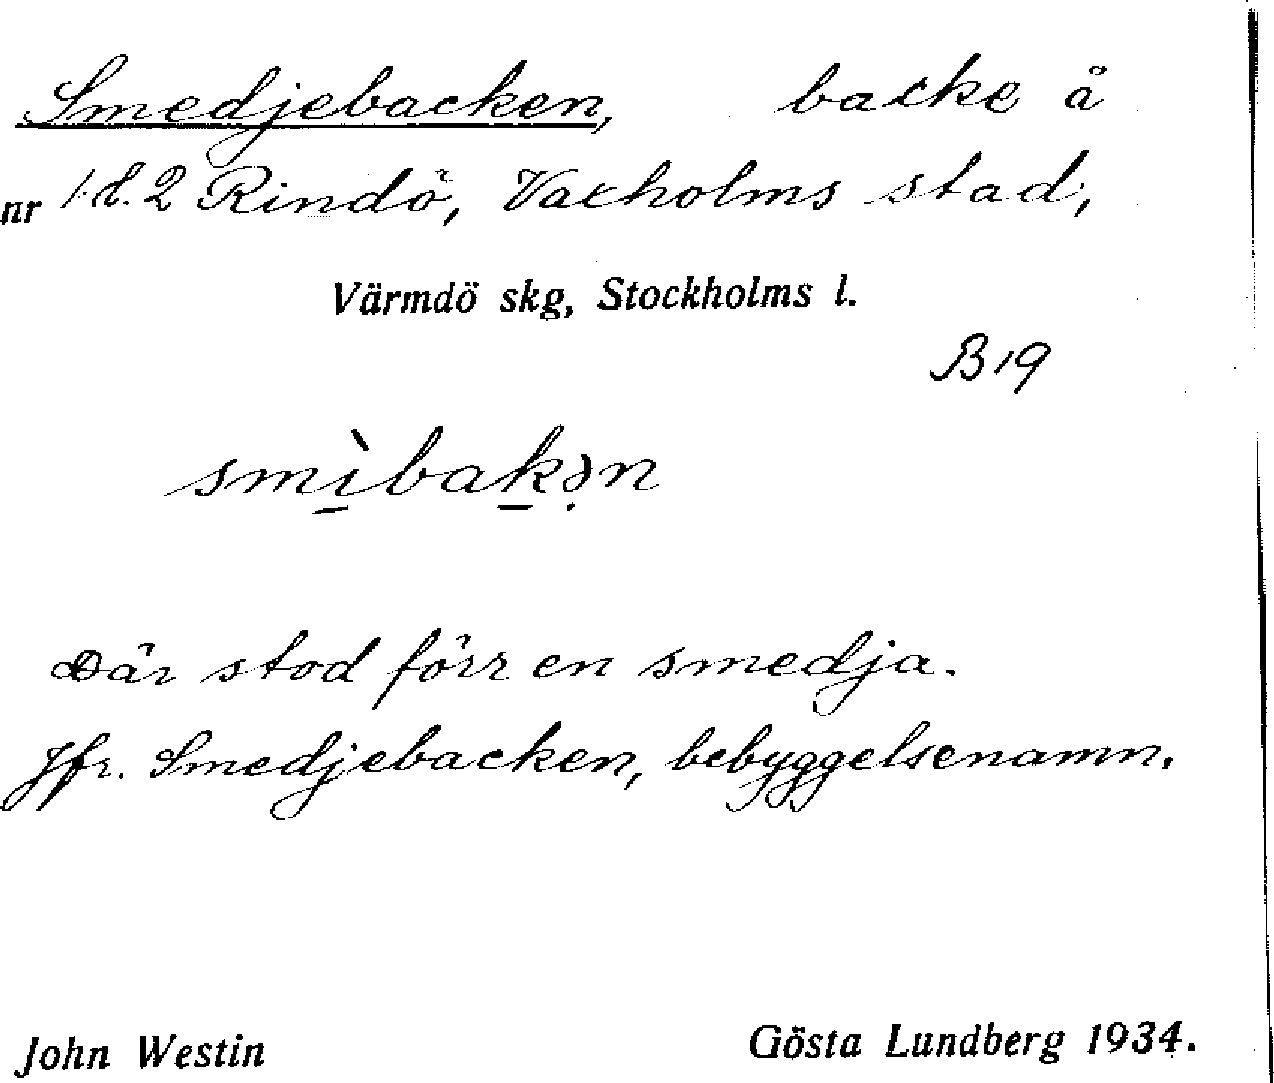 Smedjebacken, backe å
nr 1 d. 2 Rindö, Vaxholms stad,
Värmdö skg, Stockholms l.
B 19
smìbakən
Där stod förr en smedja.
Jfr. Smedjebacken, bebyggelsenamn.
John Westin Gösta Lundberg 1934.